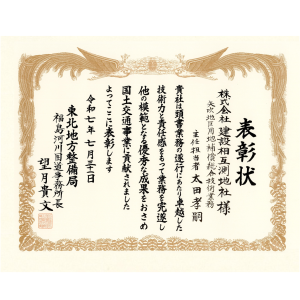 表彰状
株式会社 建設相互測地社 様
矢吹地区用地補償総合技術業務
主任担当者 太田孝嗣
貴社は頭書業務の遂行にあたり卓越した
技術力と責任感をもって業務を完遂し
他の模範となる優秀な成果をおさめ
国土交通事業に貢献されました
よってここに表彰します
令和七年七月三十一日
東北地方整備局
福島河川国道事務所長
望月貴文